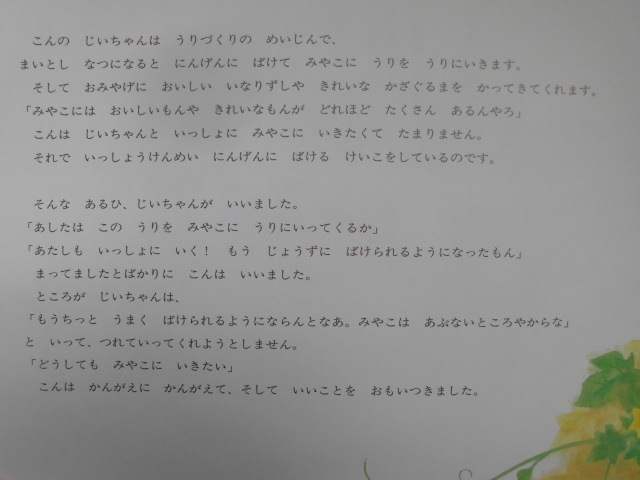 こんの　じいちゃんは　うりづくりの　めいじんで、
まいとし　なつになると　にんげんに　ばけて　みやこに　うりを　うりにいきます。
そして　おみやげに　おいしい　いなりずしや　きれいな　かざぐるまを　かってきてくれます。
「みやこには　おいしいもんや　きれいなもんが　どれほど　たくさん　あるんやろ」
こんは　じいちゃんと　いっしょに　みやこに　いきたくて　たまりません。
それで　いっしょうけんめい　にんげんに　ばける　けいこをしているのです。
そんな　あるひ、じいちゃんが　いいました。
「あしたは　この　うりを　みやこに　うりにいってくるか」
「あたしも　いっしょに　いく！　もう　じょうずに　ばけられるようになったもん」
まってましたとばかりに　こんは　いいました。
ところが　じいちゃんは、
「もうちっと　うまく　ばけられるようにならんとなあ。みやこは　あぶないところやからな」
と　いって、つれていってくれようとしません。
「どうしても　みやこに　いきたい」
こんは　かんがえに　かんがえて、そして　いいことを　おもいつきました。